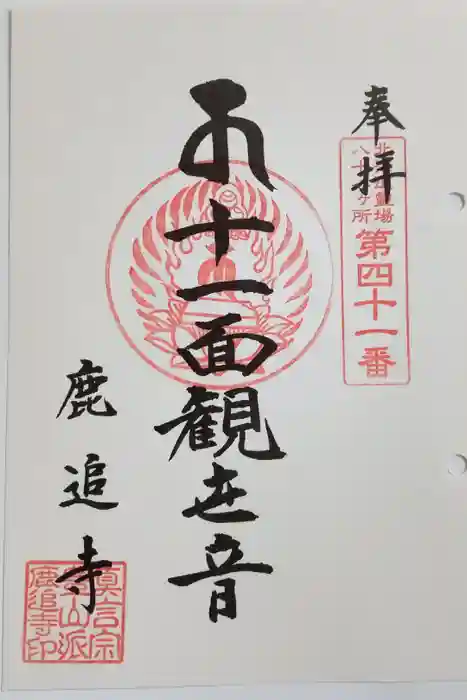 奉拝
北 霊場
八十 ヶ所
第四十一番
十一面観世音
鹿追寺
真言宗
山派
鹿追寺印